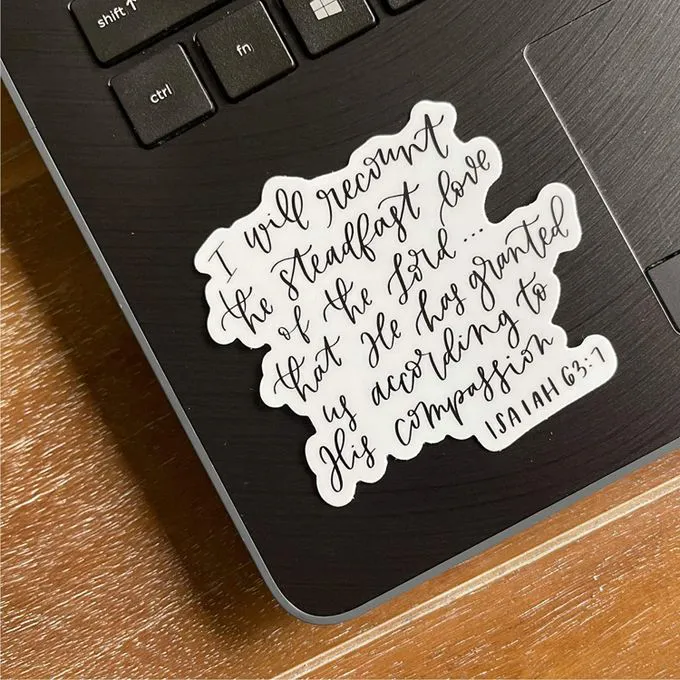 shift
ctrl
fn
I will recount
the steadfast love
of the Lord...
that He has granted
us according to
His compassion
ISAIAH 63:7